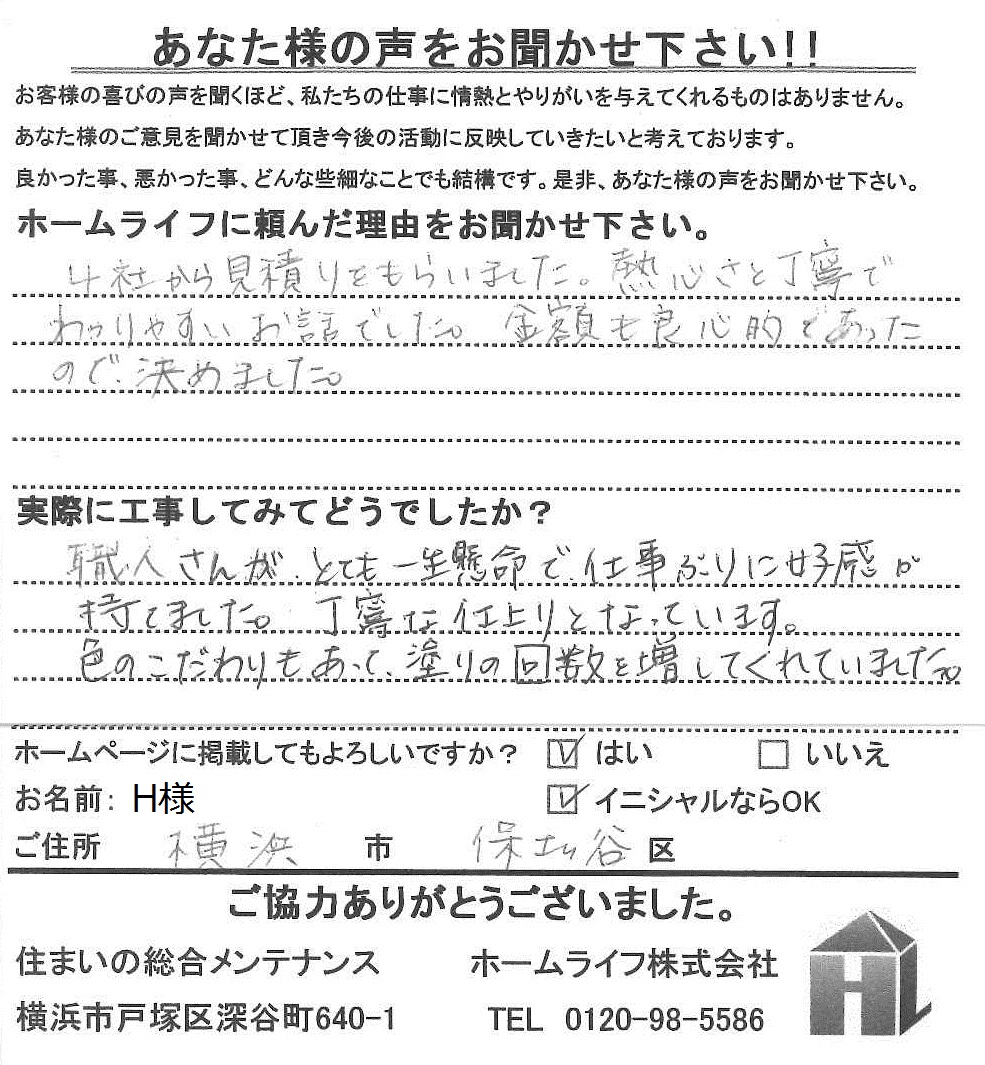 あなた様の声をお聞かせ下さい!!
お客様の喜びの声を聞くほど、私たちの仕事に情熱とやりがいを与えてくれるものはありません。
あなた様のご意見を聞かせて頂き今後の活動に反映していきたいと考えております。
良かった事、悪かった事、どんな些細なことでも結構です。是非、あなた様の声をお聞かせ下さい。
ホームライフに頼んだ理由をお聞かせ下さい。
4社から見積りをもらいました。熱心さと丁寧で
わかりやすいお話でした。金額も良心的であった
ので、決めました。
実際に工事してみてどうでしたか？
職人さんが、とても一生懸命で、仕事ぶりに好感が
持てました。丁寧な仕上りとなっています。
色のこだわりもあって、塗りの回数を増してくれていました。
ホームページに掲載してもよろしいですか？ はい いいえ
お名前: H様 イニシャルならOK
ご住所 横浜 市 保土ヶ谷 区
ご協力ありがとうございました。
住まいの総合メンテナンス ホームライフ株式会社
横浜市戸塚区深谷町640-1 TEL 0120-98-5586
HL